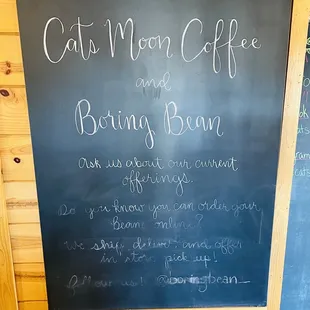 Cats Moon Coffee
and
Boring Bean
Ask us about our current
offerings.
Do you know you can order your
Beans online?
We ship, deliver and offer
in store pick up!
Follow us! @boringbean